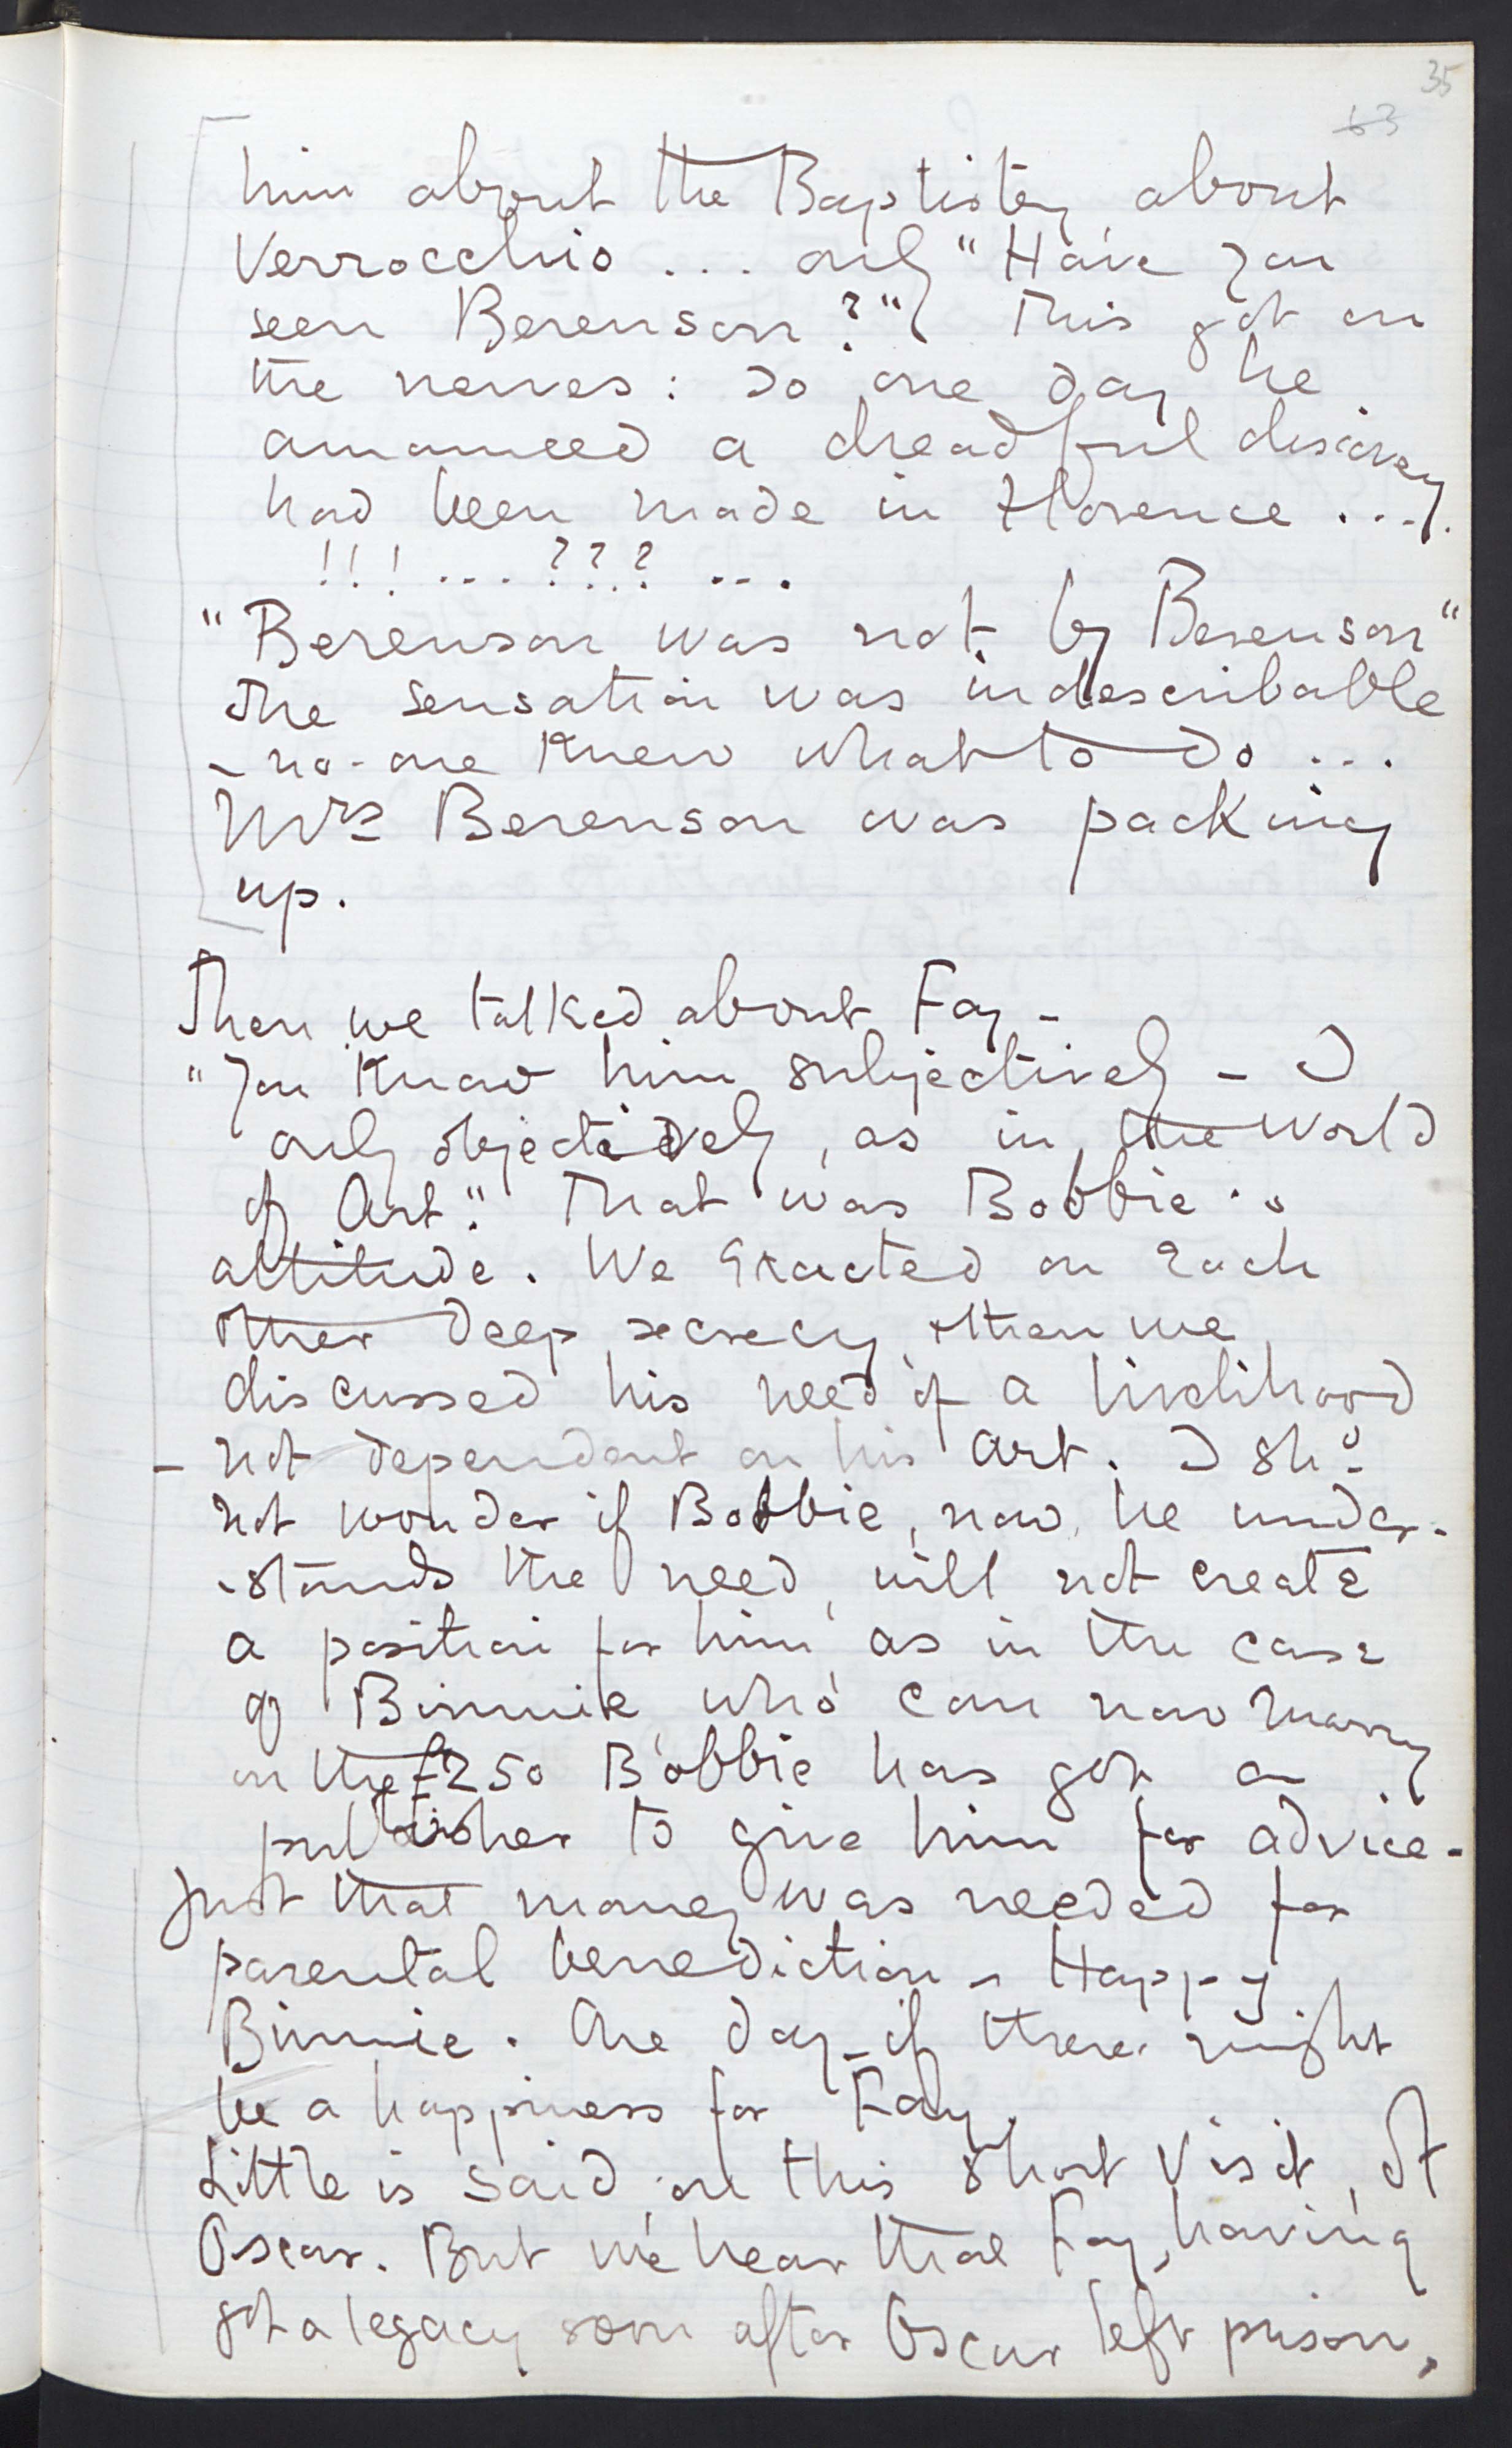 35
63
him about the Baptistery about
Verrocchio ... only "Have you
seen Berenson?" This got on
the nerves: so one day he
announced a dreadful discovery
had been made in Florence ....
!!! ... ??? ...
"Berenson was not by Berenson"
The sensation was indescribable
- no-one knew what to do ...
Mrs Berenson was packing
up.
Then we talked about Fay -
"You know him subjectively - I
only objectively, as in the World
of Art." That was Bobbie's
attitude. We exacted on each
other deep secrecy, then we
discussed his need of a livelihood
- not dependent on his art. I shd
not wonder if Bobbie, now he under-
-stands the need, will not create
a position for him as in the case
of Binnie who can now marry
on the £250 Bobbie has got a
publisher to give him for advice -
just that money was needed for
parental benediction - Happy
Binnie. One day - if there might
be a happiness for Fay.
Little is said, on this short visit, of
Oscar. But we hear that Fay, having
got a legacy soon after Oscar left prison,